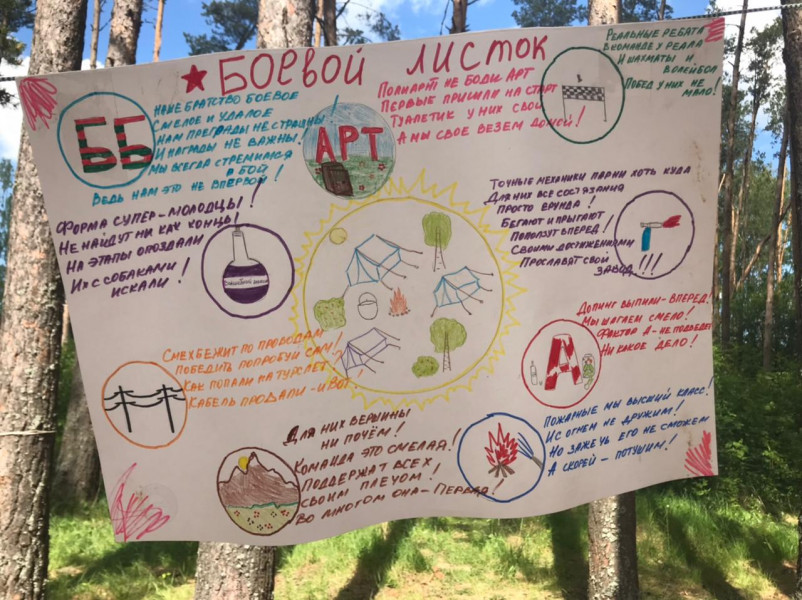 ★ БОЕВОЙ ЛИСТОК
ББ
НАШЕ БРАТСТВО БОЕВОЕ
СМЕЛОЕ И УДАЛОЕ
НАМ ПРЕГРАДЫ НЕ СТРАШНЫ
И НАГРАДЫ НЕ ВАЖНЫ!
МЫ ВСЕГДА СТРЕМИМСЯ
В БОЙ
ВЕДЬ НАМ ЭТО НЕ ВПЕРВОЙ!
АРТ
ПОЛИАРТ НЕ БОДИ АРТ
ПЕРВЫЕ ПРИШЛИ НА СТАРТ
ТУАЛЕТИК У НИХ СВОЙ
А МЫ СВОЕ ВЕЗЕМ ДОМОЙ!
РЕАЛЬНЫЕ РЕБЯТА
В КОМАНДЕ У РЕАЛА
И ШАХМАТЫ И
ВОЛЕЙБОЛ
ПОБЕД У НИХ НЕ
МАЛО!
ФОРМА СУПЕР-МОЛОДЦЫ!
НЕ НАЙДУТ НИ КАК КОНЦЫ
НА ЭТАПЫ ОПОЗДАЛИ
ИХ С СОБАКАМИ
ИСКАЛИ!
ТОЧНЫЕ МЕХАНИКИ ПАРНИ ХОТЬ КУДА
ДЛЯ НИХ ВСЕ СОСТЯЗАНИЯ
ПРОСТО ЕРУНДА!
БЕГАЮТ И ПРЫГАЮТ
ПОПОЛЗУТ ВПЕРЕД!
СВОИМИ ДОСТИЖЕНИЯМИ
ПРОСЛАВЯТ СВОЙ
ЗАВОД!!!
ДОПИНГ ВЫПИЛИ-ВПЕРЕД!
МЫ ШАГАЕМ СМЕЛО!
ФАКТОР А-НЕ ПОДВЕДЕТ
НИ КАКОЕ ДЕЛО!
А
СМЕХ БЕЖИТ ПО ПРОВОДАМ
ПОБЕДИТЬ ПОПРОБУЙ САМ!
КАК ПОПАЛИ НА ТУРСЛЕТ
КАБЕЛЬ ПРОДАЛИ-И ВОТ!
ДЛЯ НИХ ВЕРШИНЫ
НИ ПОЧЁМ!
КОМАНДА ЭТО СМЕЛАЯ!
ПОДДЕРЖАТ ВСЕХ
СВОИМ ПЛЕЧОМ!
ВО МНОГОМ ОНА-ПЕРВАЯ!
ПОЖАРНЫЕ МЫ ВЫСШИЙ КЛАСС!
И С ОГНЕМ НЕ ДРУЖИМ!
НО ЗАЖЕЧЬ ЕГО НЕ СМОЖЕМ
А СКОРЕЙ-ПОТУШИМ!